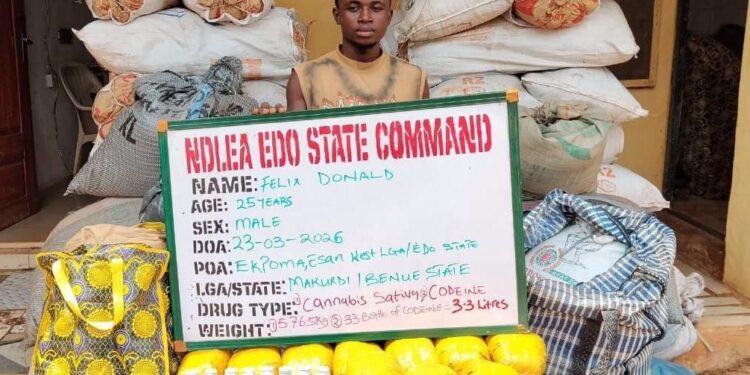 NDLEA EDO STATE COMMAND
NAME: FELIX DONALD
AGE: 25 YEARS
SEX: MALE
DOA: 23-03-2026
POA: EKPOMA, ESAN West LGA/EDO STATE
LGA/STATE: MAKURDI/BENUE STATE
DRUG TYPE: ① Cannabis Sativa ② CODEINE
WEIGHT: ① 576.5kg ② 33 Bottle of CODEINE = 3.3 Litres